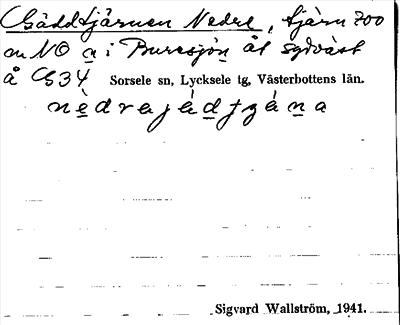 Gäddtjärnen Nedre, tjärn 700
m NO n i Buresjön åt sydväst
å G34 Sorsele sn, Lycksele tg, Västerbottens län.
Sigvard Wallström, 1941.